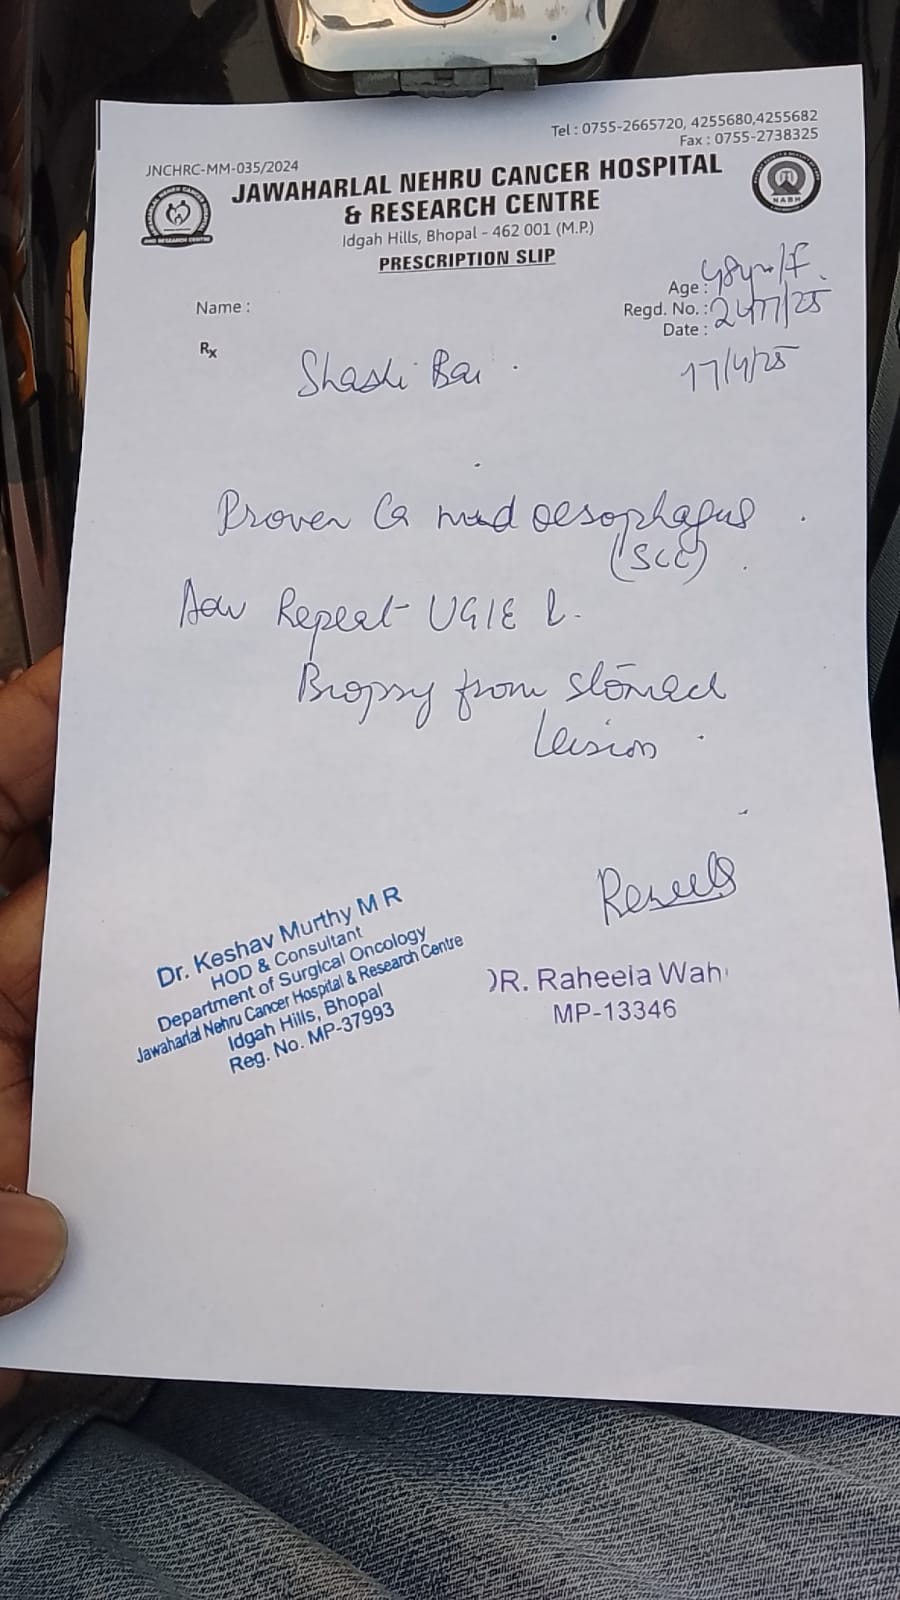 Tel : 0755-2665720, 4255680,4255682
Fax : 0755-2738325
JNCHRC-MM-035/2024
JAWAHARLAL NEHRU CANCER HOSPITAL
& RESEARCH CENTRE
Idgah Hills, Bhopal - 462 001 (M.P.)
PRESCRIPTION SLIP
NABH
Name :
Age : 48yrs/F
Regd. No. :
Date : 17/4/25
Rx
Shashi Bai
Proven Ca mid oesophagus
(SCC)
Adv Repeat UGIE
Biopsy from stomach
lesion
Dr. Keshav Murthy M R
HOD & Consultant
Department of Surgical Oncology
Jawaharlal Nehru Cancer Hospital & Research Centre
Idgah Hills, Bhopal
Reg. No. MP-37993
DR. Raheela Wah
MP-13346